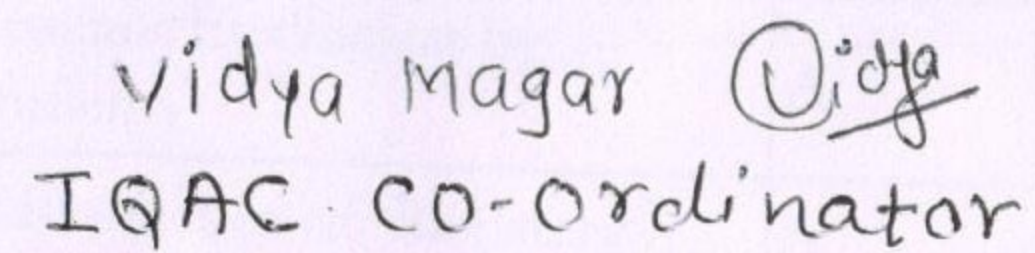 Vidya Magar Vidya
IQAC CO-Ordinator